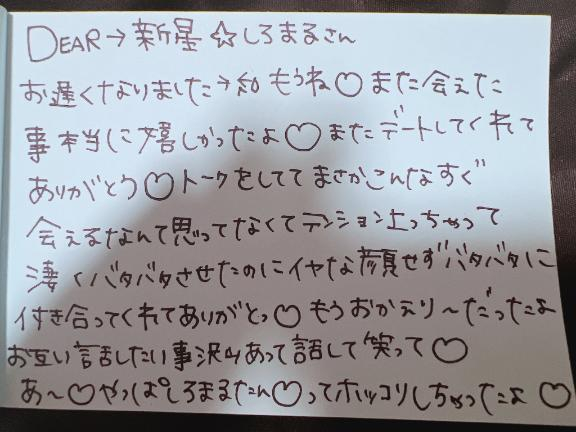 DEAR→新星☆しろまるさん
お遅くなりました→ もうね♡また会えた
事本当に嬉しかったよ♡またデートしてくれて
ありがとう♡トークをしててまさかこんなすぐ
会えるなんて思ってなくてテンション上っちゃって
凄くバタバタさせたのにイヤな顔せずバタバタに
付き合ってくれてありがとっ♡もうおかえり〜だったよ
お互い話したい事沢山あって話して笑って♡
あ〜♡やっぱしろまるたん♡ってホッコリしちゃったよ♡